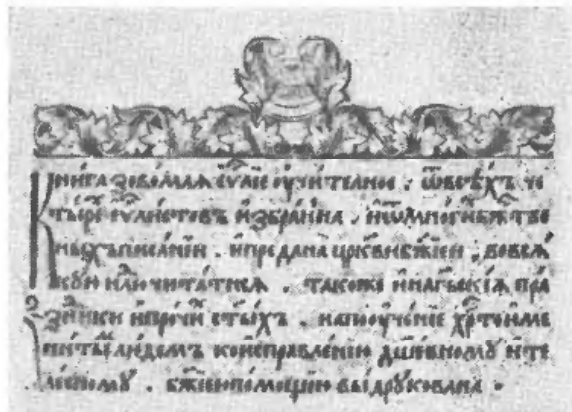 Кни́га зовома́ѧ еѵⷢ҇лїе оучи́телное . ѿвсѣ́хъ че
ты́рє еѵⷢ҇листовъ и҆збра́нна . и҆ѿмно́гиⷯ бж҃тве
ныⷯъ писанїи . и҆предана цр҃кви бж҃їеи , вовсѧ́
кꙋю нлⷣю чита́тисѧ . тако́же и҆ на гⷭ҇ьскїѧ пра́
зⷣники и҆про́чиⷯ ст҃ы́хъ . на поꙋче́нїе хрⷭ҇тоиме
ни́тыⷨ лю́демъ ко и҆справле́нїю дш҃е́вномꙋ и҆ те
ле́сномꙋ . бж҃їею по́мощїю вы́дрꙋкована .